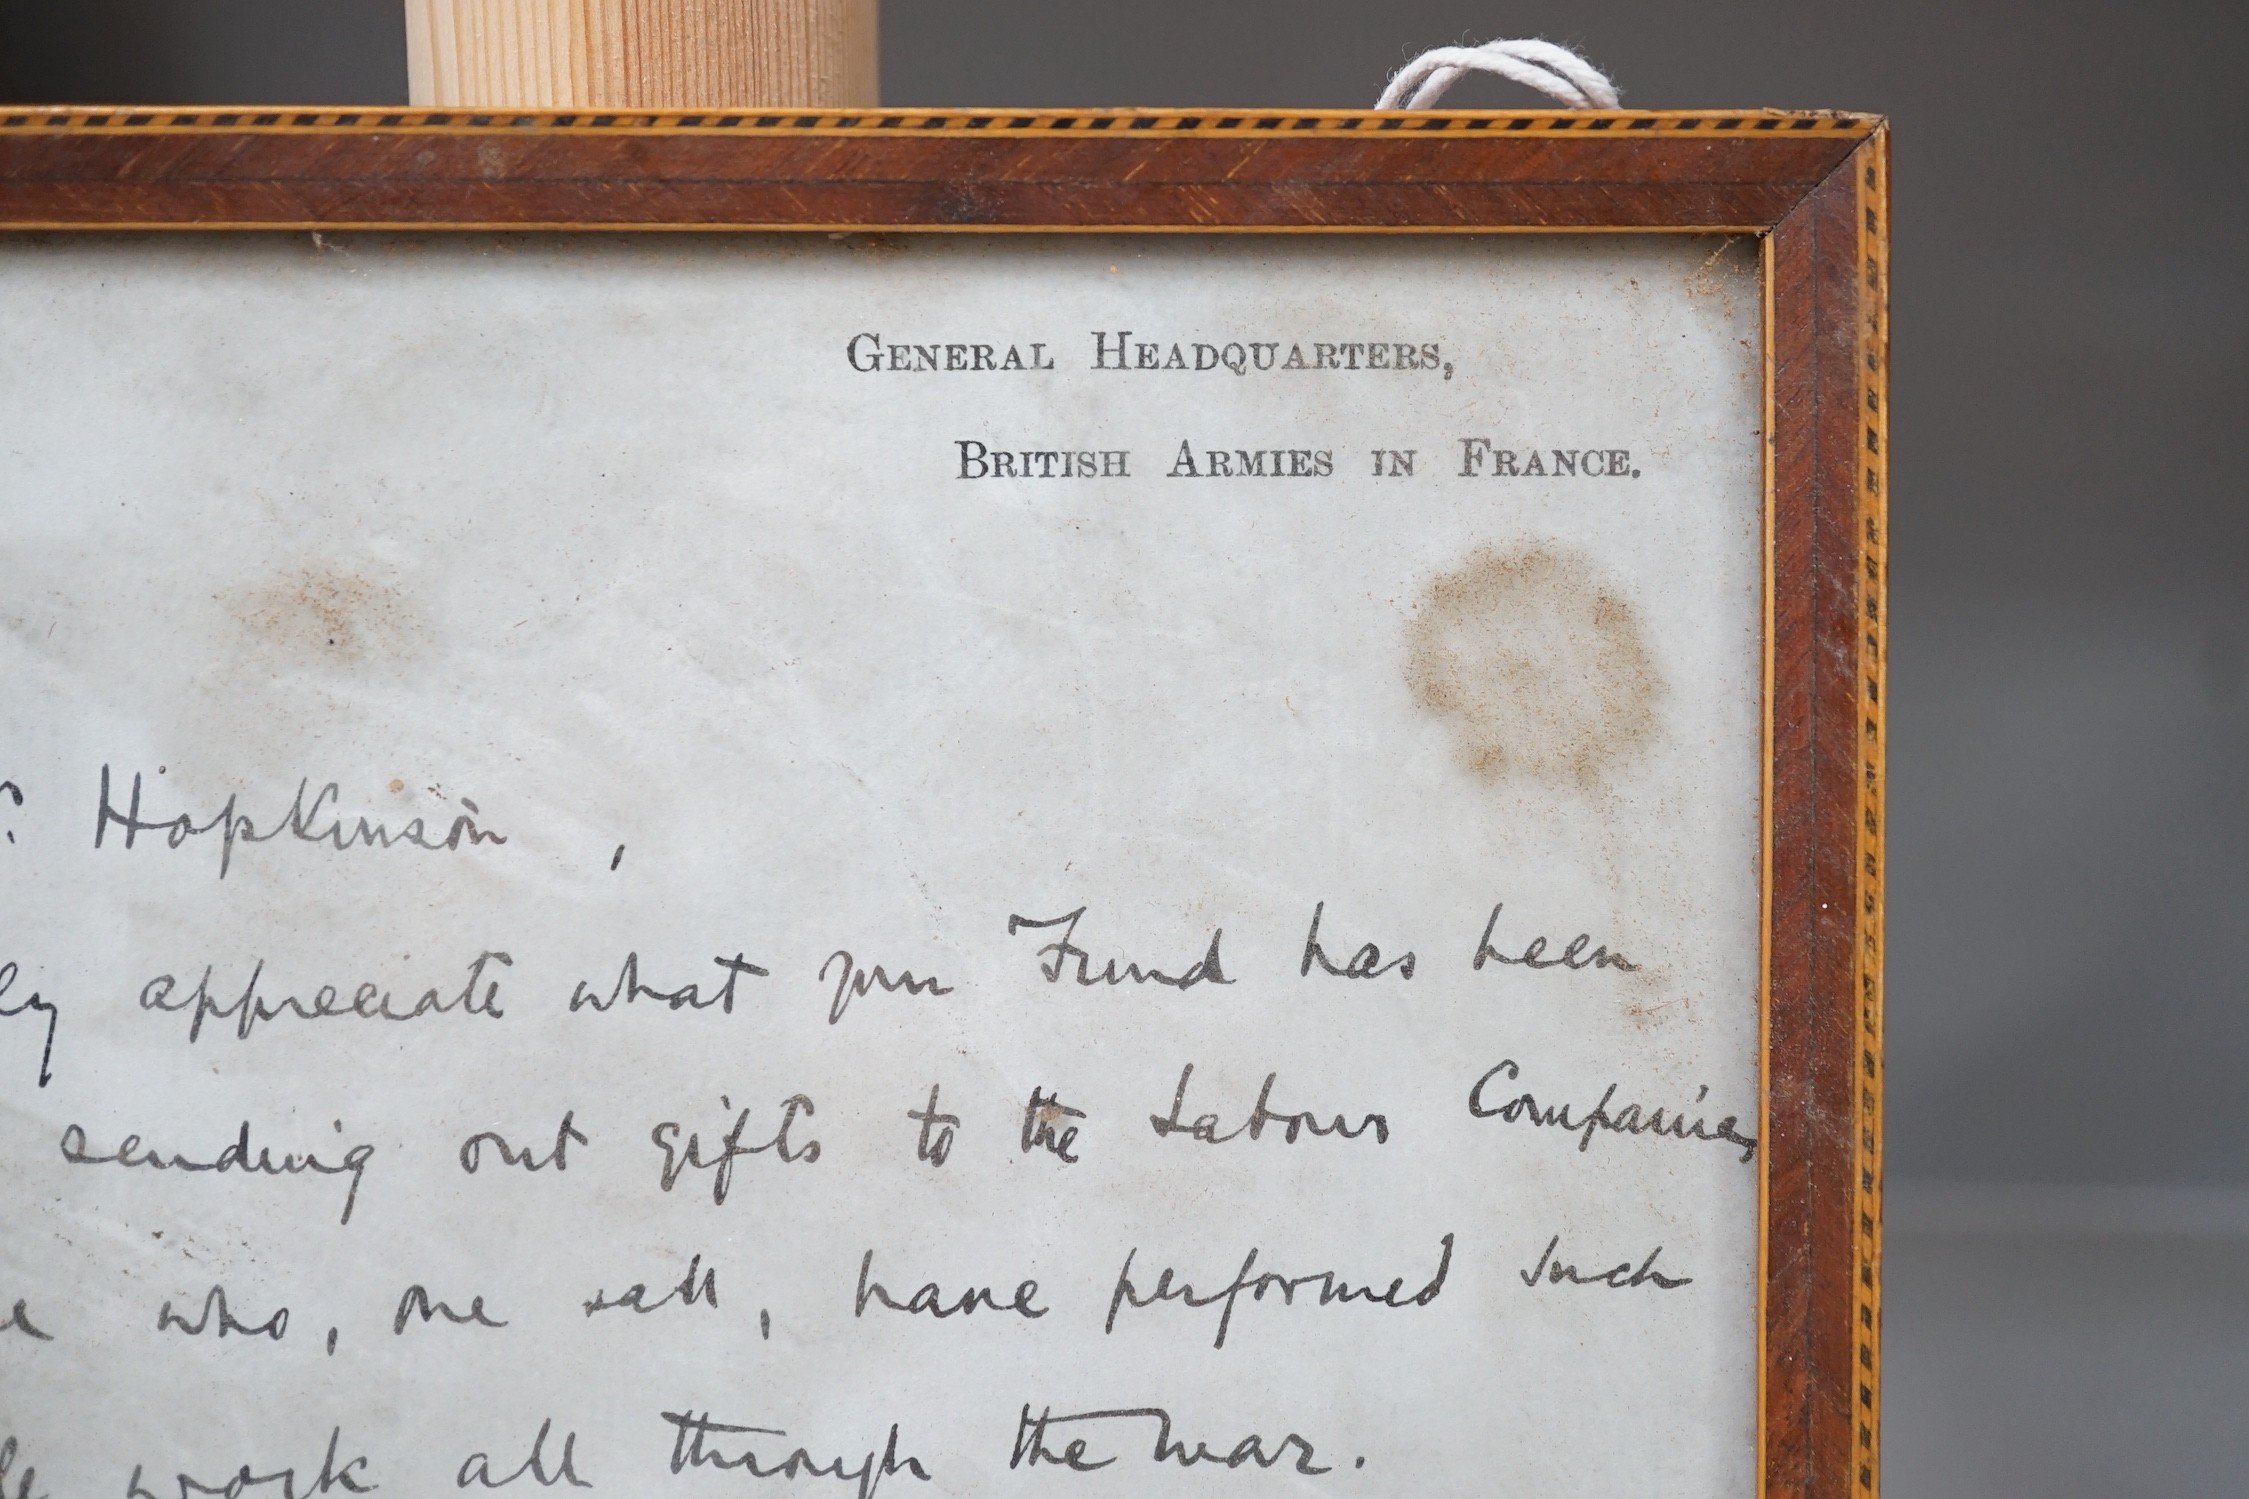 General Headquarters,
British Armies in France.
Hopkinson,
ly appreciate what your Fund has been
sending out gifts to the Labour Companies,
who, one & all, have performed such
work all through the war.